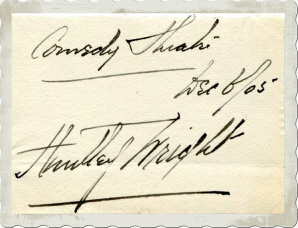 Comedy Theatre
Dec 6/05
Huntley Wright